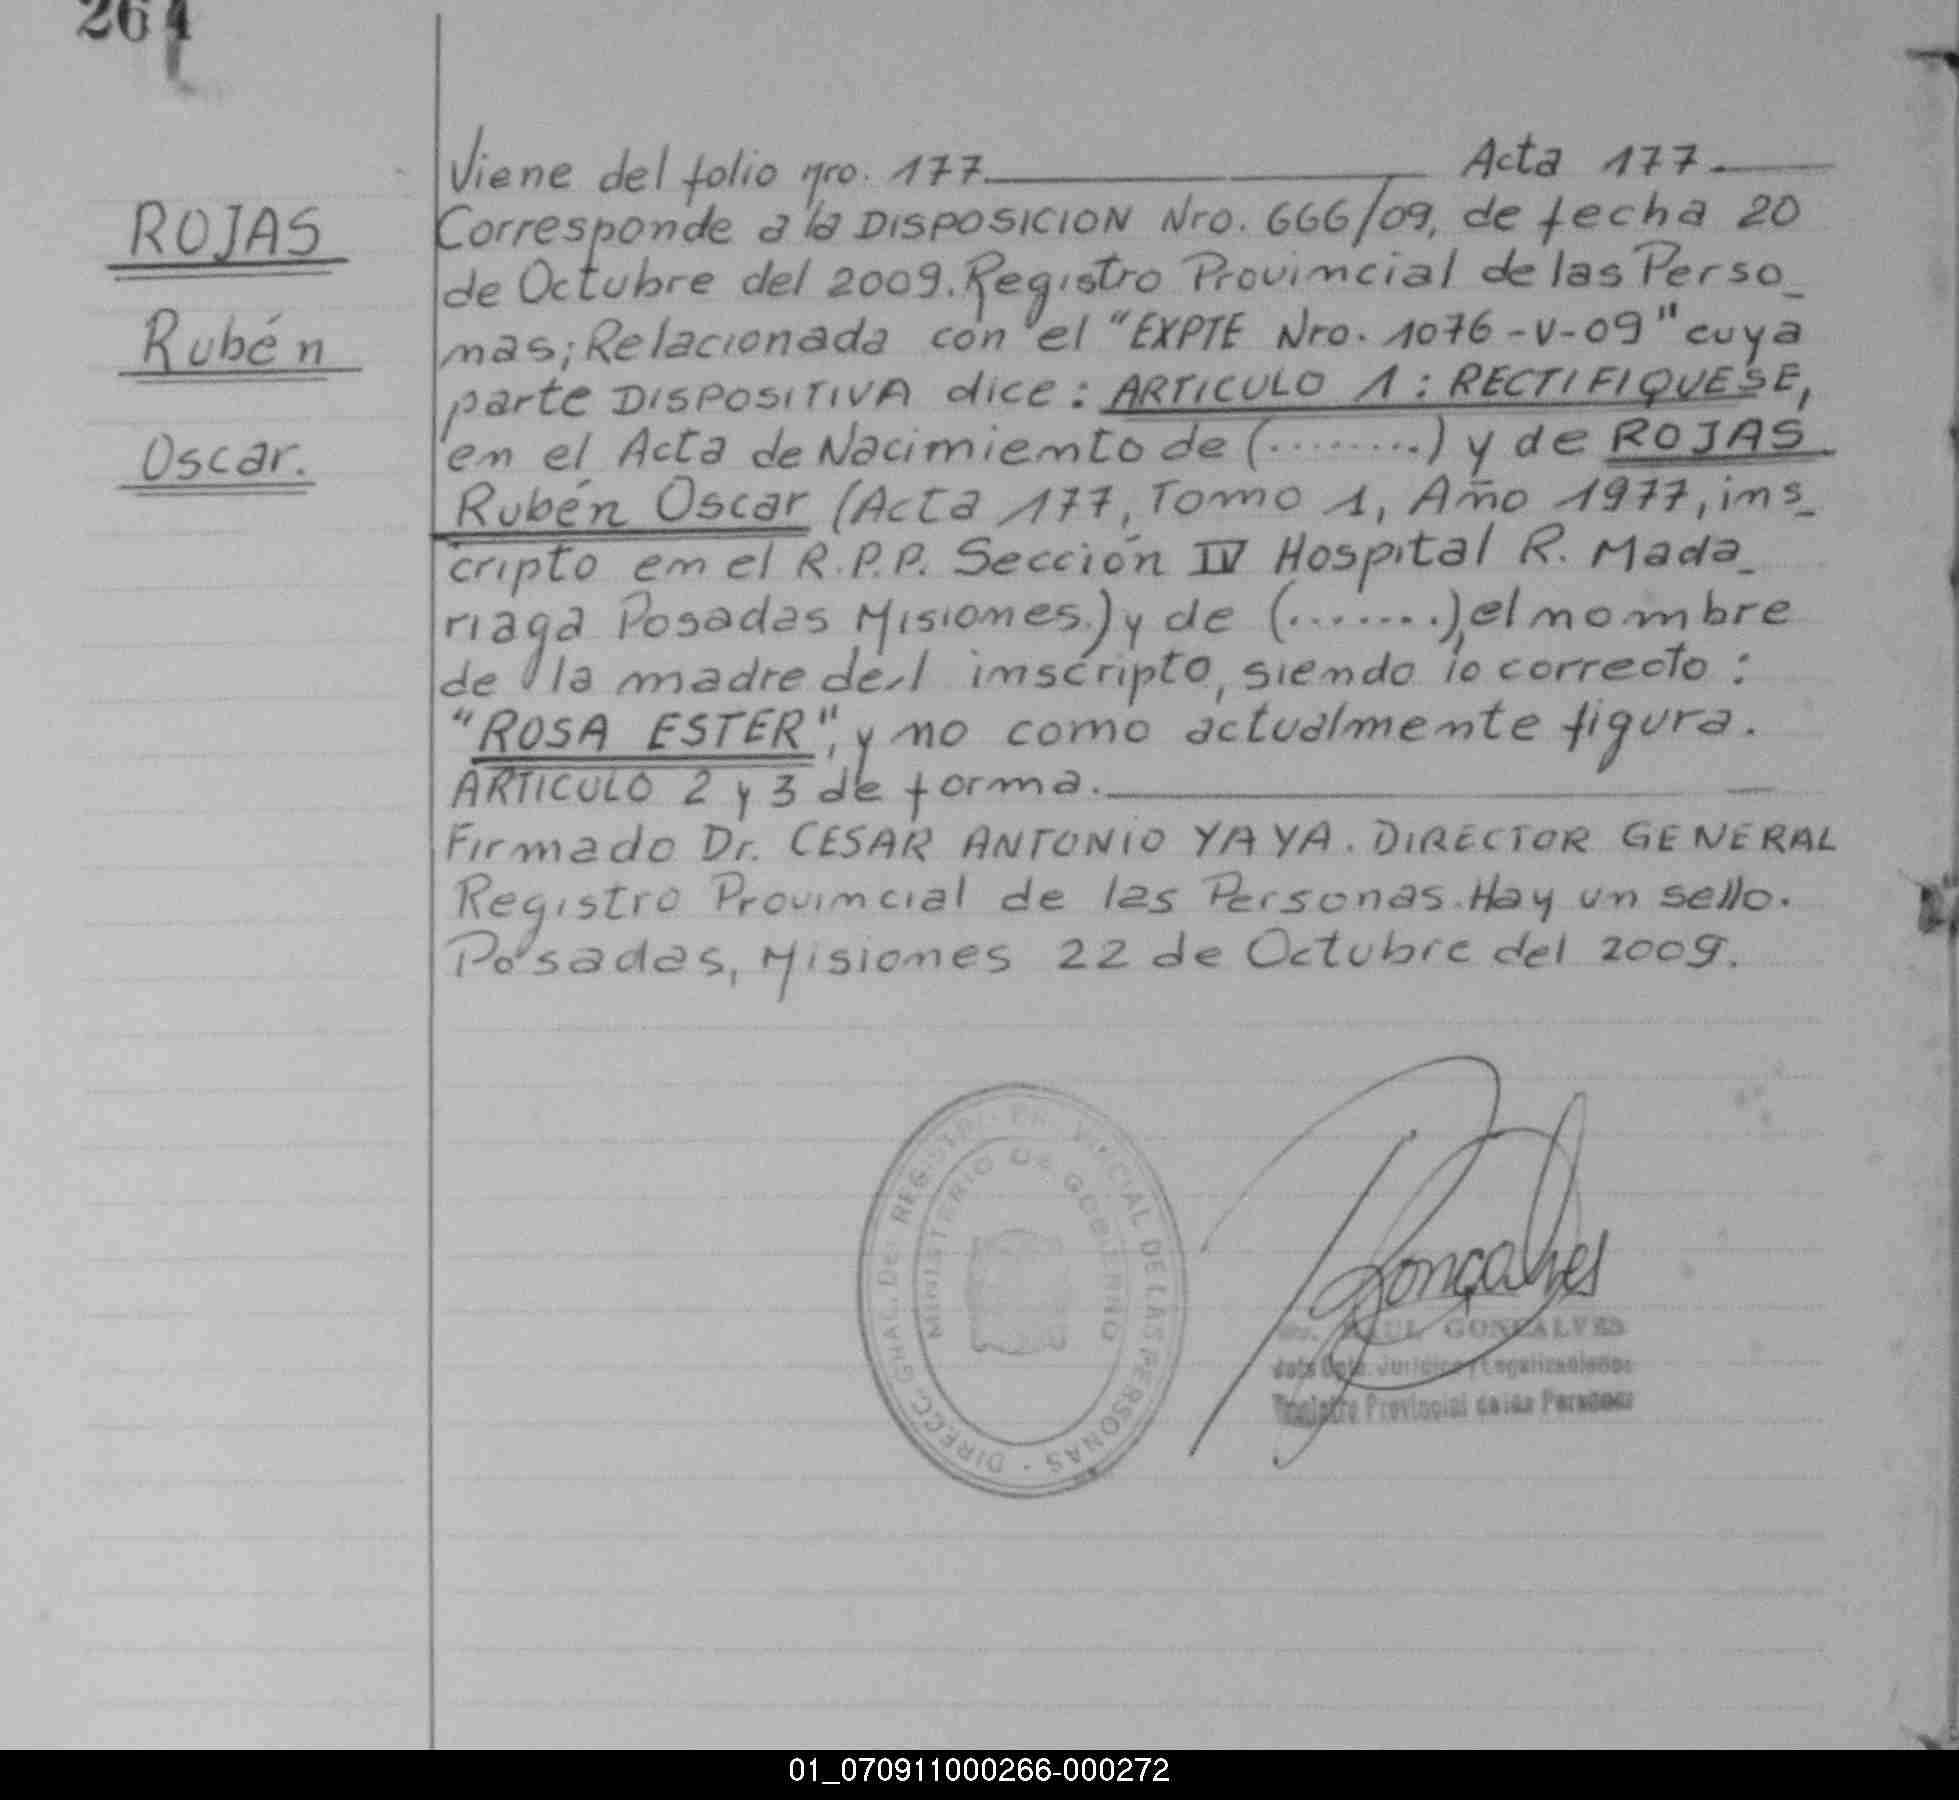 261
ROJAS
Rubén
Oscar.
Viene del folio nro. 177 Acta 177.
Corresponde a la DISPOSICION Nro. 666/09, de fecha 20
de Octubre del 2009. Registro Provincial de las Perso_
nas; Relacionada con el "EXPTE Nro. 1076-V-09" cuya
parte DISPOSITIVA dice: ARTICULO 1: RECTIFIQUESE,
en el Acta de Nacimiento de (........) y de ROJAS
Rubén Oscar (Acta 177, Tomo 1, Año 1977, ins_
cripto en el R.P.P. Sección IV Hospital R. Mada_
riaga Posadas Misiones.) y de (.......), el nombre
de la madre del inscripto, siendo lo correcto:
"ROSA ESTER", y no como actualmente figura.
ARTICULO 2 y 3 de forma.
Firmado Dr. CESAR ANTONIO YAYA. DIRECTOR GENERAL
Registro Provincial de las Personas. Hay un sello.
Posadas, Misiones 22 de Octubre del 2009.
DIRECC. GRAL. DE REGISTRO PROVINCIAL DE LAS PERSONAS
MINISTERIO DE GOBIERNO
Gonçalves
RAUL GONCALVES
Jefe Dpto. Jurídico y Legalizaciones
Registro Provincial de las Personas
01_070911000266-000272